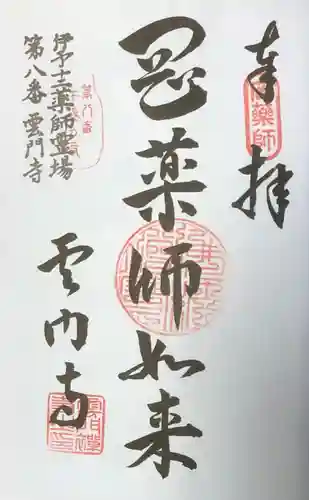 奉拝
薬師
薬師如来
伊予十二薬師霊場
第八番 雲門寺
第八番
雲門寺